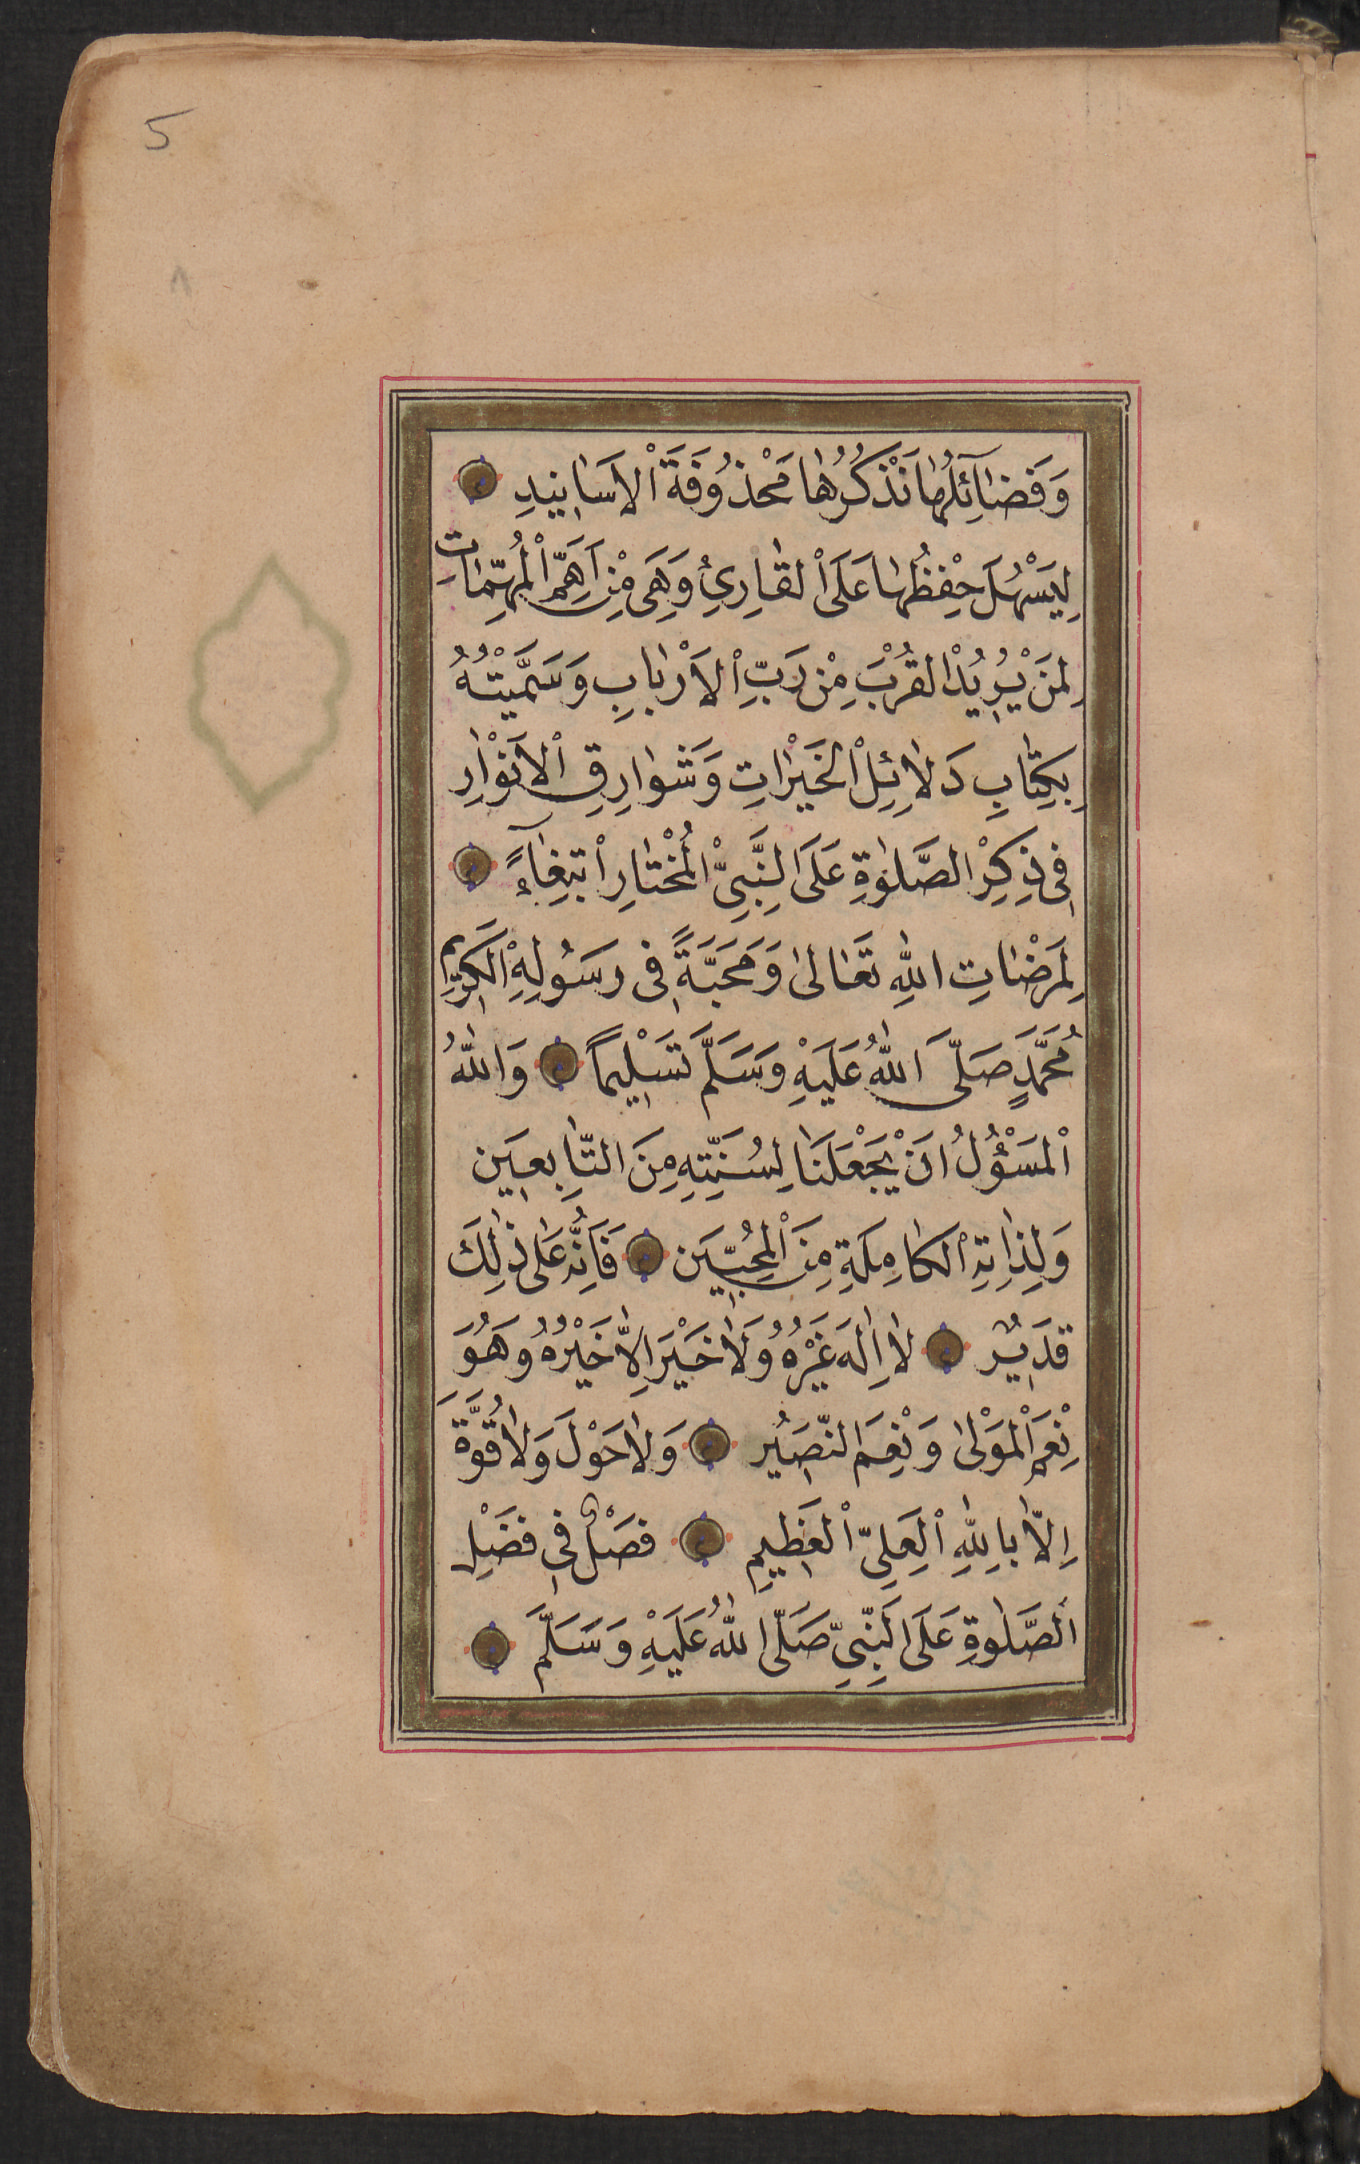 5
وَفَضَآئِلُهَا نَذْكُرُهَا مَحْذُوفَةَ الْاَسَانِيدِ
لِيَسْهُلَ حِفْظُهَا عَلَى الْقَارِئِ وَهِيَ مِنْ اَهَمِّ الْمُهِمَّاتِ
لِمَنْ يُرِيدُ الْقُرْبَ مِنْ رَبِّ الْاَرْبَابِ وَسَمَّيْتُهُ
بِكِتَابِ دَلَائِلِ الْخَيْرَاتِ وَشَوَارِقِ الْاَنْوَارِ
فِى ذِكْرِ الصَّلٰوةِ عَلَى النَّبِيِّ الْمُخْتَارِ ابْتِغَآءً
لِمَرْضَاتِ اللّٰهِ تَعَالٰى وَمَحَبَّةً فِى رَسُولِهِ الْكَرِيمِ
مُحَمَّدٍ صَلَّى اللّٰهُ عَلَيْهِ وَسَلَّمَ تَسْلِيماً وَاللّٰهُ
الْمَسْؤُلُ اَنْ يَجْعَلَنَا لِسُنَّتِهِ مِنَ التَّابِعِينَ
وَلِذَاتِهِ الْكَامِلَةِ مِنَ الْمُحِبِّينَ فَاِنَّهُ عَلٰى ذٰلِكَ
قَدِيرٌ لَا اِلٰهَ غَيْرُهُ وَلَا خَيْرَ اِلَّا خَيْرُهُ وَهُوَ
نِعْمَ الْمَوْلٰى وَنِعْمَ النَّصِيرُ وَلَا حَوْلَ وَلَا قُوَّةَ
اِلَّا بِاللّٰهِ الْعَلِيِّ الْعَظِيمِ فَصْلٌ فِى فَضْلِ
الصَّلٰوةِ عَلَى النَّبِيِّ صَلَّى اللّٰهُ عَلَيْهِ وَسَلَّمَ